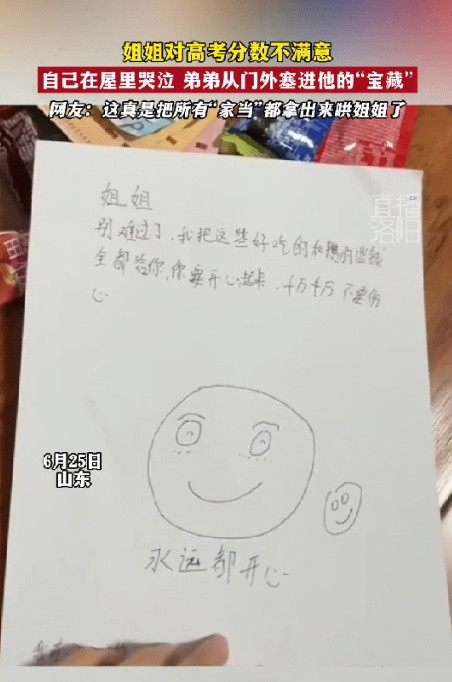 姐姐对高考分数不满意
自己在屋里哭泣 弟弟从门外塞进他的“宝藏”
网友：这真是把所有“家当”都拿出来哄姐姐了
直播
洛阳
姐姐
别难过了,我把这些好吃的和
全都给你,你要开心起来,千万千万不要伤
心
6月25日
山东
永远都开心